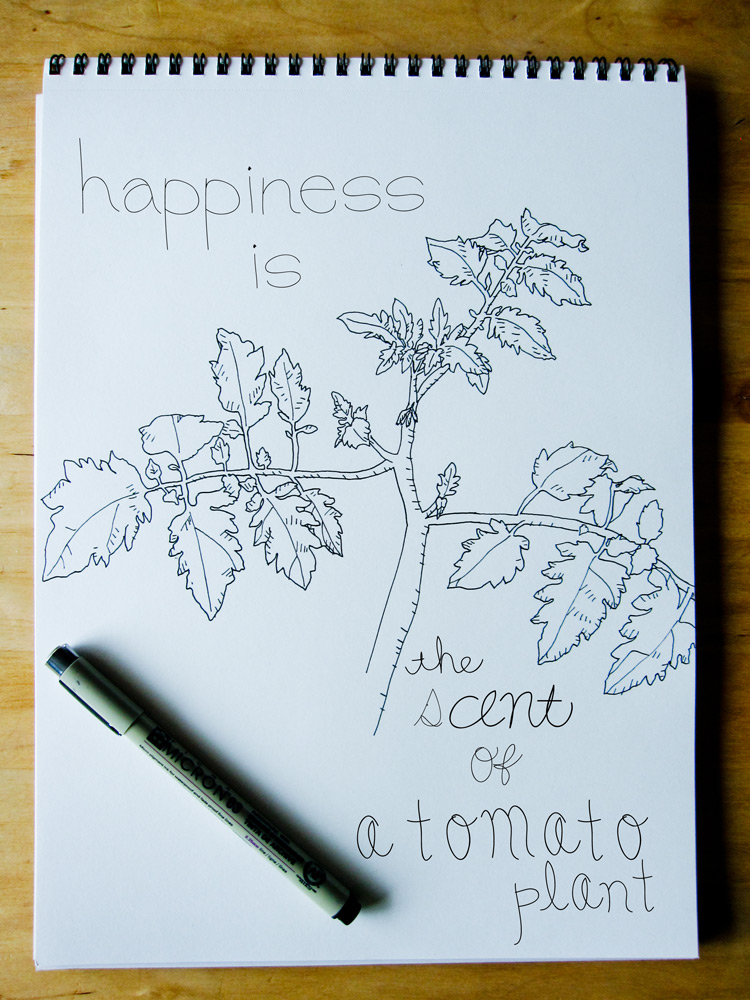 happiness
is
the
scent
of
a tomato
plant
MICRON